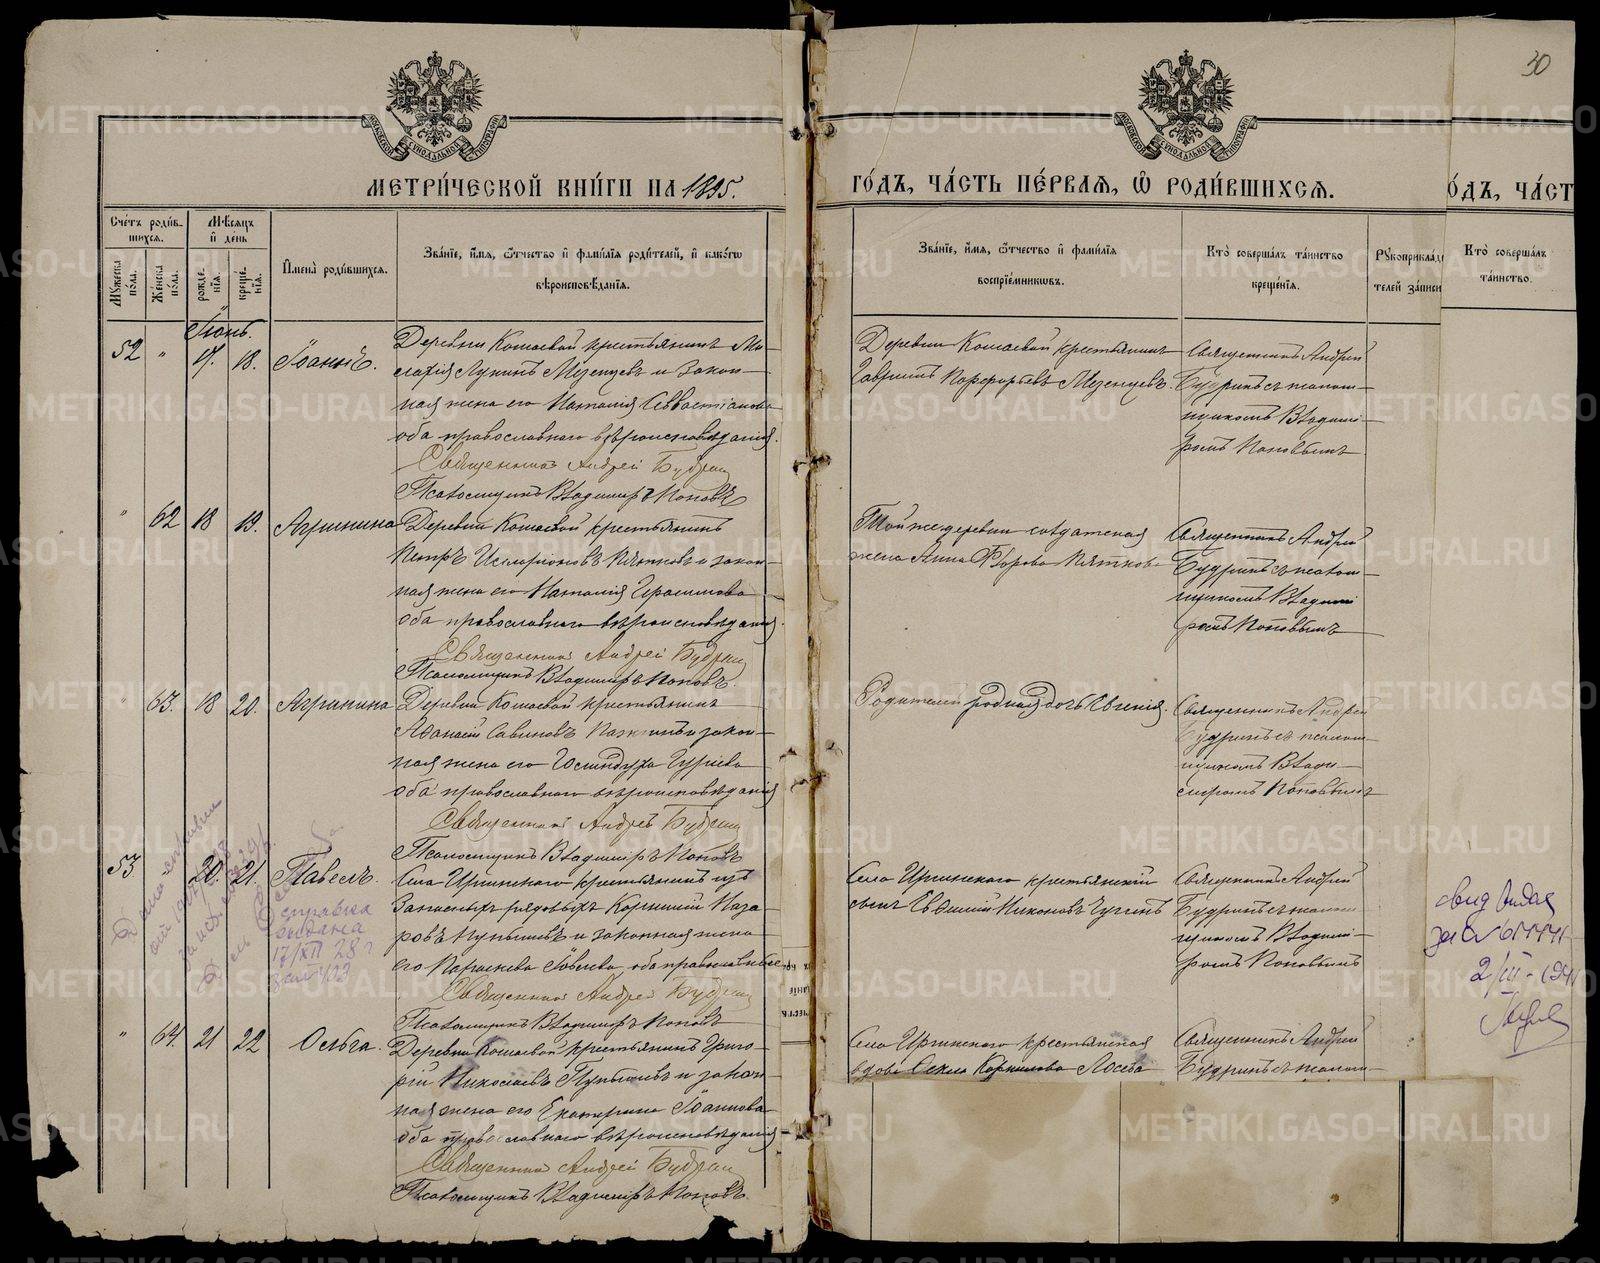 30
МОСКОВСКОЙ СѴНОДАЛЬНОЙ ТИПОГРАФІИ
МОСКОВСКОЙ СѴНОДАЛЬНОЙ ТИПОГРАФІИ
МЕТРИ́ЧЕСКОЙ КНИ́ГИ НА 1895.
ГО́ДЪ, ЧА́СТЬ ПЕ́РВАѦ, Ѡ҆ РОДИ́ВШИХСѦ.
О́ДЪ, ЧА́СТ
Сче́тъ роди́в-
шихся.
Мѣ́сяцъ
и҆ день
Мꙋ́жеска по́ла.
Же́нска по́ла.
рожде́нїя.
креще́нїя.
И҆мена̀ роди́вшихся.
Зва́нїе, и҆́мя, ѻ҆́тчество и҆ фамі́лїя роди́телей, и҆ како́гѡ
вѣроисповѣ́данїя.
Зва́нїе, и҆́мя, ѻ҆́тчество и҆ фамі́лїя
воспрїе́мникѡвъ.
Кто̀ соверша́лъ та́инство
креще́нїя.
Рꙋкоприкла́д
телей за́писи
Кто̀ соверша́лъ
та́инство.
Іюнь.
52 " 17. 18. Іоаннъ.
Деревни Кошаевой крестьянинъ Ма-
лафія Лукинъ Мезенцевъ и закон-
ная жена его Наталія Севастіанова
оба православнаго вѣроисповѣданія.
Священникъ Андрей Будринъ
Псаломщикъ Владиміръ Поповъ
Деревни Кошаевой крестьянинъ
Гавріилъ Порфирьевъ Мезенцевъ.
Священникъ Андрей
Будринъ съ псалом-
щикомъ Владимі-
ромъ Поповымъ
" 62 18 19. Агрипина
Деревни Кошаевой крестьянинъ
Петръ Иларіоновъ Пятковъ и закон-
ная жена его Наталія Герасимова
оба православнаго вѣроисповѣданія.
Священникъ Андрей Будринъ
Псаломщикъ Владиміръ Поповъ.
Той же деревни солдатская
жена Анна Фролова Пяткова
Священникъ Андрей
Будринъ съ псалом-
щикомъ Владимі
ромъ Поповымъ
63. 18 20. Агрипина
Деревни Кошаевой крестьянинъ
Афанасій Савиновъ и закон-
ная жена его Гурьева
оба православнаго вѣроисповѣданія
Священникъ Андрей Будринъ
Псаломщикъ Владиміръ Поповъ
Родителей родная дочь Евгенія.
Священникъ Андрей
Будринъ съ псалом-
щикомъ Влади-
міромъ Поповымъ
53 20. 21. Павелъ.
Села Иргинскаго крестьянинъ изъ
запасныхъ рядовыхъ Корнилій Наза-
ровъ Пупышевъ и законная жена
его Параскева, оба православные
Священникъ Андрей Будринъ
Псаломщикъ Владиміръ Поповъ
Села Иргинскаго крестьянскій
сынъ Евфимій Никоновъ Чугинъ
Священникъ Андрей
Будринъ съ псалом-
щикомъ Владимі-
ромъ Поповымъ
Справка
выдана
17/XII 28 г
" 64. 21 22 Ольга.
Деревни Кошаевой крестьянинъ Григо-
рій Николаевъ Пупышевъ и закон-
ная жена его Екатерина Іоаннова
оба православнаго вѣроисповѣданія
Священникъ Андрей Будринъ
Псаломщикъ Владиміръ Поповъ.
Села Иргинскаго крестьянская
вдова Фекла Корнилова Лосева
Священникъ Андрей
Будринъ съ псалом-
METRIKI.GASO-URAL.RU